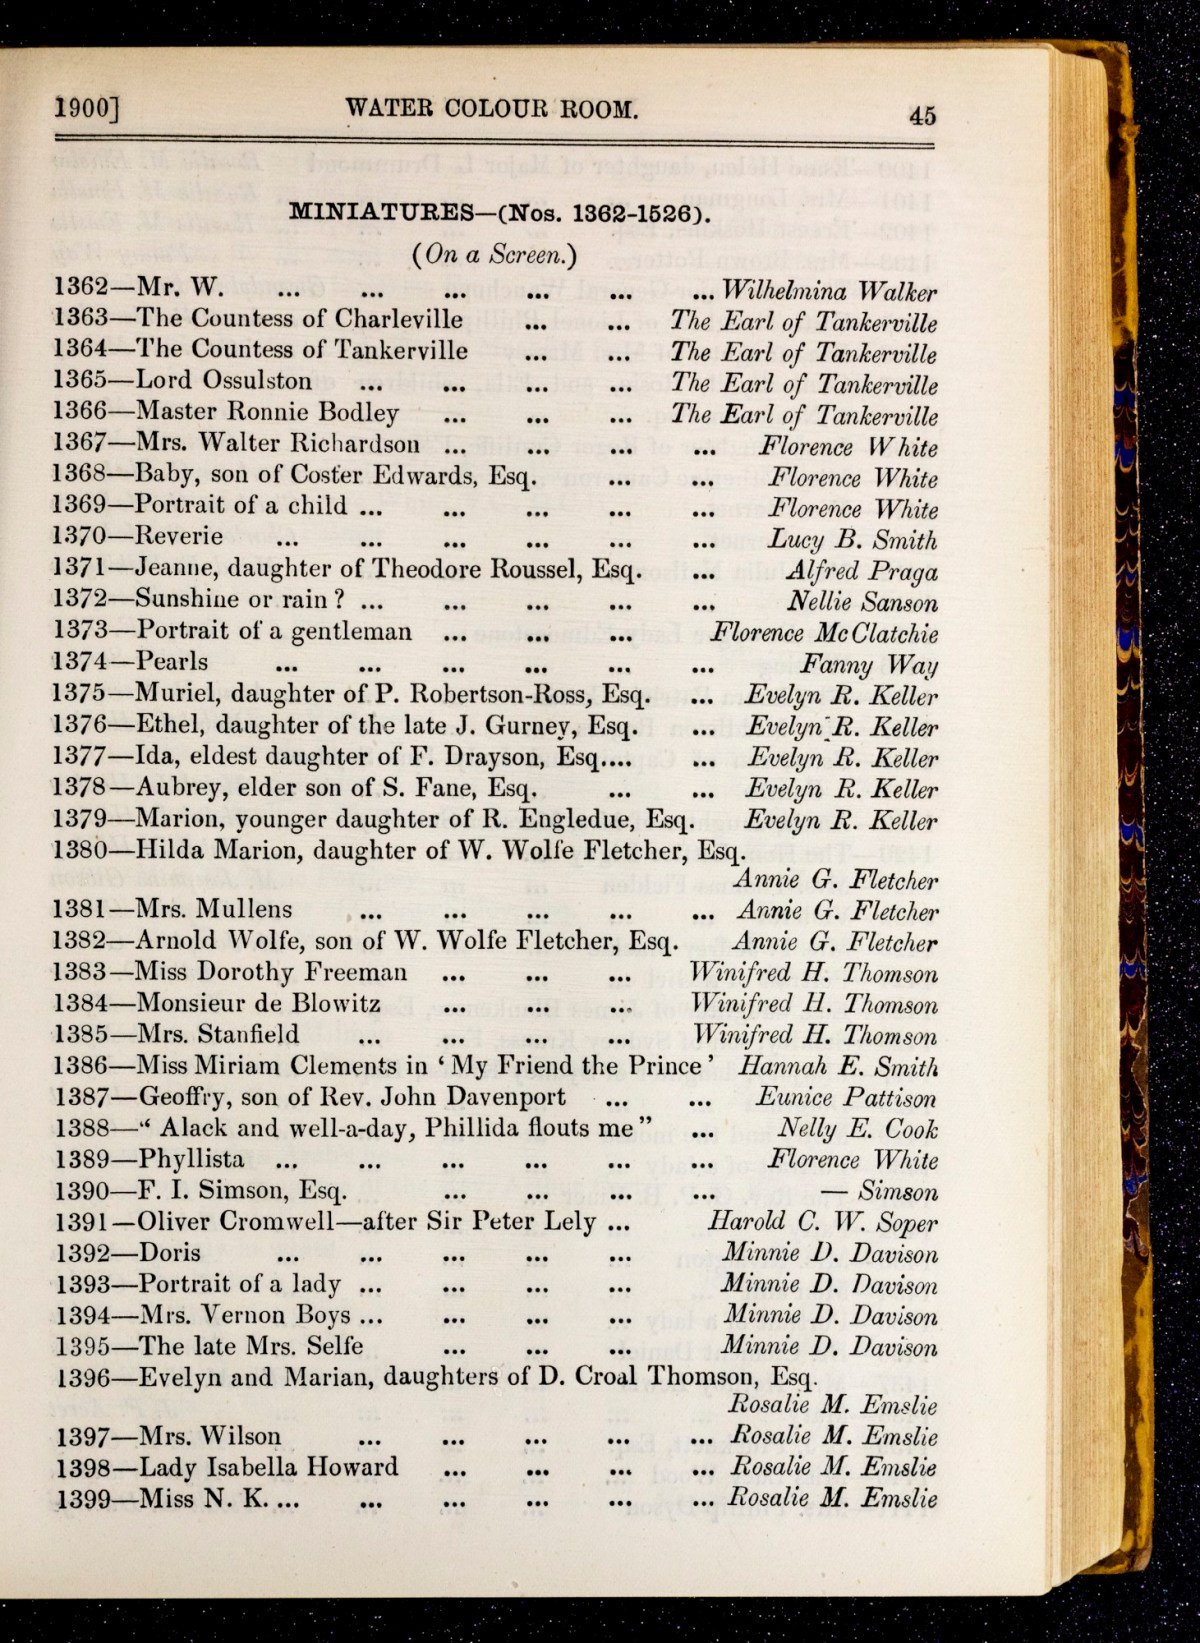 1900] WATER COLOUR ROOM. 45
MINIATURES—(Nos. 1362-1526).
(On a Screen.)
1362—Mr. W. ... ... ... ... ... ... Wilhelmina Walker
1363—The Countess of Charleville ... ... The Earl of Tankerville
1364—The Countess of Tankerville ... ... The Earl of Tankerville
1365—Lord Ossulston ... ... ... ... The Earl of Tankerville
1366—Master Ronnie Bodley ... ... ... The Earl of Tankerville
1367—Mrs. Walter Richardson ... ... ... ... Florence White
1368—Baby, son of Coster Edwards, Esq. ... ... Florence White
1369—Portrait of a child ... ... ... ... ... Florence White
1370—Reverie ... ... ... ... ... ... Lucy B. Smith
1371—Jeanne, daughter of Theodore Roussel, Esq. ... Alfred Praga
1372—Sunshine or rain ? ... ... ... ... ... Nellie Sanson
1373—Portrait of a gentleman ... ... ... Florence McClatchie
1374—Pearls ... ... ... ... ... ... Fanny Way
1375—Muriel, daughter of P. Robertson-Ross, Esq. ... Evelyn R. Keller
1376—Ethel, daughter of the late J. Gurney, Esq. ... Evelyn R. Keller
1377—Ida, eldest daughter of F. Drayson, Esq.... ... Evelyn R. Keller
1378—Aubrey, elder son of S. Fane, Esq. ... ... Evelyn R. Keller
1379—Marion, younger daughter of R. Engledue, Esq. Evelyn R. Keller
1380—Hilda Marion, daughter of W. Wolfe Fletcher, Esq.
Annie G. Fletcher
1381—Mrs. Mullens ... ... ... ... ... Annie G. Fletcher
1382—Arnold Wolfe, son of W. Wolfe Fletcher, Esq. Annie G. Fletcher
1383—Miss Dorothy Freeman ... ... ... Winifred H. Thomson
1384—Monsieur de Blowitz ... ... ... Winifred H. Thomson
1385—Mrs. Stanfield ... ... ... ... Winifred H. Thomson
1386—Miss Miriam Clements in ‘ My Friend the Prince ’ Hannah E. Smith
1387—Geoffry, son of Rev. John Davenport ... ... Eunice Pattison
1388—“ Alack and well-a-day, Phillida flouts me ” ... Nelly E. Cook
1389—Phyllista ... ... ... ... ... ... Florence White
1390—F. I. Simson, Esq. ... ... ... ... — Simson
1391—Oliver Cromwell—after Sir Peter Lely ... Harold C. W. Soper
1392—Doris ... ... ... ... ... Minnie D. Davison
1393—Portrait of a lady ... ... ... ... Minnie D. Davison
1394—Mrs. Vernon Boys ... ... ... ... Minnie D. Davison
1395—The late Mrs. Selfe ... ... ... Minnie D. Davison
1396—Evelyn and Marian, daughters of D. Croal Thomson, Esq.
Rosalie M. Emslie
1397—Mrs. Wilson ... ... ... ... ... Rosalie M. Emslie
1398—Lady Isabella Howard ... ... ... ... Rosalie M. Emslie
1399—Miss N. K. ... ... ... ... ... Rosalie M. Emslie